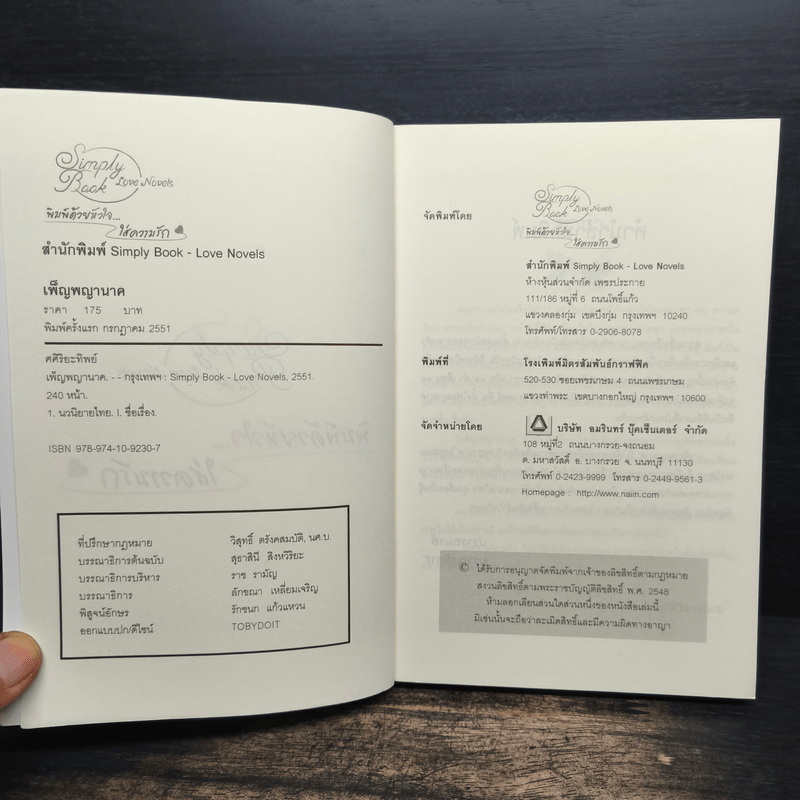 Simply
Book Love Novels
พิมพ์ด้วยหัวใจ...
ใส่ความรัก
สำนักพิมพ์ Simply Book - Love Novels
เพ็ญพญานาค
ราคา 175 บาท
พิมพ์ครั้งแรก กรกฎาคม 2551
ศศิริยะทิพย์
เพ็ญพญานาค. - - กรุงเทพฯ : Simply Book - Love Novels, 2551.
240 หน้า.
1. นวนิยายไทย. I. ชื่อเรื่อง.
ISBN 978-974-10-9230-7
ที่ปรึกษากฎหมาย วิสุทธิ์ ตรังคสมบัติ, นศ.บ.
บรรณาธิการต้นฉบับ สุธาสินี สิงหวีริยะ
บรรณาธิการบริหาร ราช รามัญ
บรรณาธิการ ลักขณา เหลี่ยมเจริญ
พิสูจน์อักษร รักชนก แก้วแหวน
ออกแบบปก/ดีไซน์ TOBYDOIT
จัดพิมพ์โดย
Simply
Book Love Novels
พิมพ์ด้วยหัวใจ...
ใส่ความรัก
สำนักพิมพ์ Simply Book - Love Novels
ห้างหุ้นส่วนจำกัด เพชรประกาย
111/186 หมู่ที่ 6 ถนนโพธิ์แก้ว
แขวงคลองกุ่ม เขตบึงกุ่ม กรุงเทพฯ 10240
โทรศัพท์/โทรสาร 0-2906-8078
พิมพ์ที่ โรงเพิมพ์มิตรสัมพันธ์กราฟฟิค
520-530 ซอยเพชรเกษม 4 ถนนเพชรเกษม
แขวงท่าพระ เขตบางกอกใหญ่ กรุงเทพฯ 10600
จัดจำหน่ายโดย บริษัท อมรินทร์ บุ๊คเซ็นเตอร์ จำกัด
108 หมู่ที่2 ถนนบางกรวย-จงถนอม
ต. มหาสวัสดิ์ อ. บางกรวย จ. นนทบุรี 11130
โทรศัพท์ 0-2423-9999 โทรสาร 0-2449-9561-3
Homepage : http://www.naiin.com
© ได้รับการอนุญาตจัดพิมพ์จากเจ้าของลิขสิทธิ์ตามกฎหมาย
สงวนลิขสิทธิ์ตามพระราชบัญญัติลิขสิทธิ์ พ.ศ. 2548
ห้ามลอกเลียนส่วนใดส่วนหนึ่งของหนังสือเล่มนี้
มิเช่นนั้นจะถือว่าละเมิดสิทธิ์และมีความผิดทางอาญา